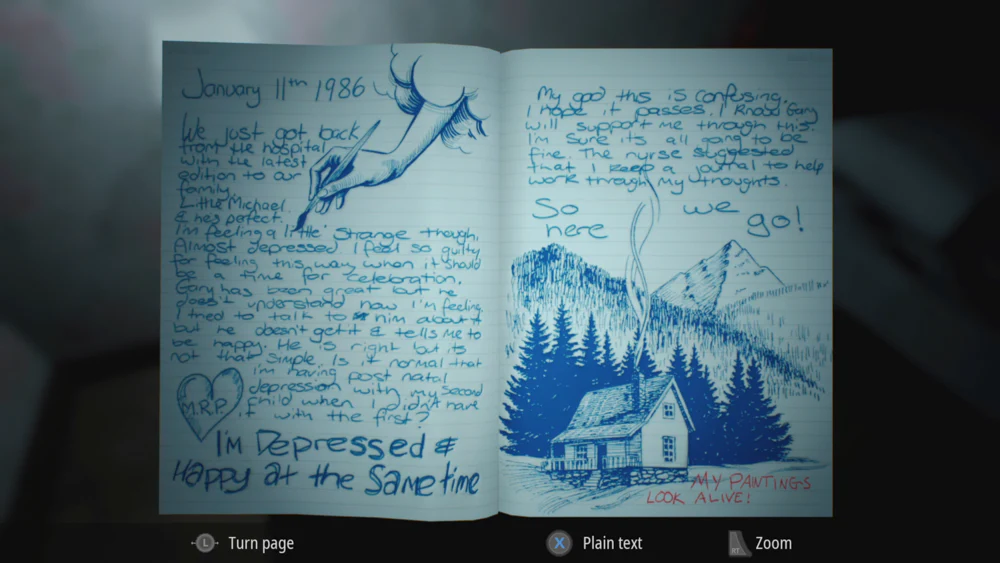 January 11th 1986
We just got back
from the hospital
with the latest
adition to our
family.
Little Michael.
& he's perfect.
I'm feeling a little strange though,
Almost depressed. I feel so guilty
for feeling this way when it should
be a time for celebration.
Gary has been great but he
doesn't understand how I'm feeling
I tried to talk to him about it
but he doesn't get it & tells me to
be happy. He is right but its
not that simple. Is it normal that
i'm having post natal
depression with my second
child when I didn't have
it with the first?
M.R.P.
I'm Depressed &
Happy at the Same time
My god this is confusing,
I hope it passes. I know Gary
will support me through this.
I'm sure its all going to be
fine. The nurse suggested
that I keep a journal to help
work through my thoughts.
So we
here go!
MY PAINTINGS
LOOK ALIVE!
L Turn page
X Plain text
RT Zoom